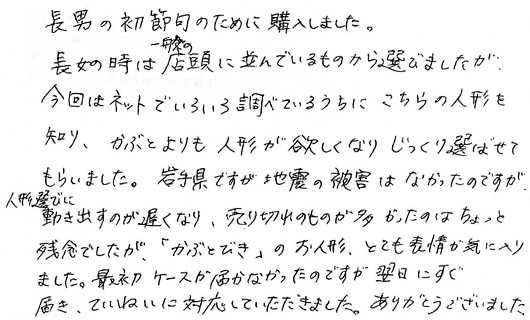 長男の初節句のために購入しました。
長女の時は一般の店頭に並んでいるものから選びましたが、
今回はネットでいろいろ調べているうちに こちらの人形を
知り、かぶとよりも 人形が欲しくなり じっくり選ばせて
もらいました。岩手県ですが地震の被害は なかったのですが
人形選びに動き出すのが遅くなり、売り切れのものが多かったのはちょっと
残念でしたが、「かぶとびき」のお人形、とても表情が気に入り
ました。最初 ケースが届かなかったのですが 翌日にすぐ
届き、ていねいに対応していただきました。ありがとうございました